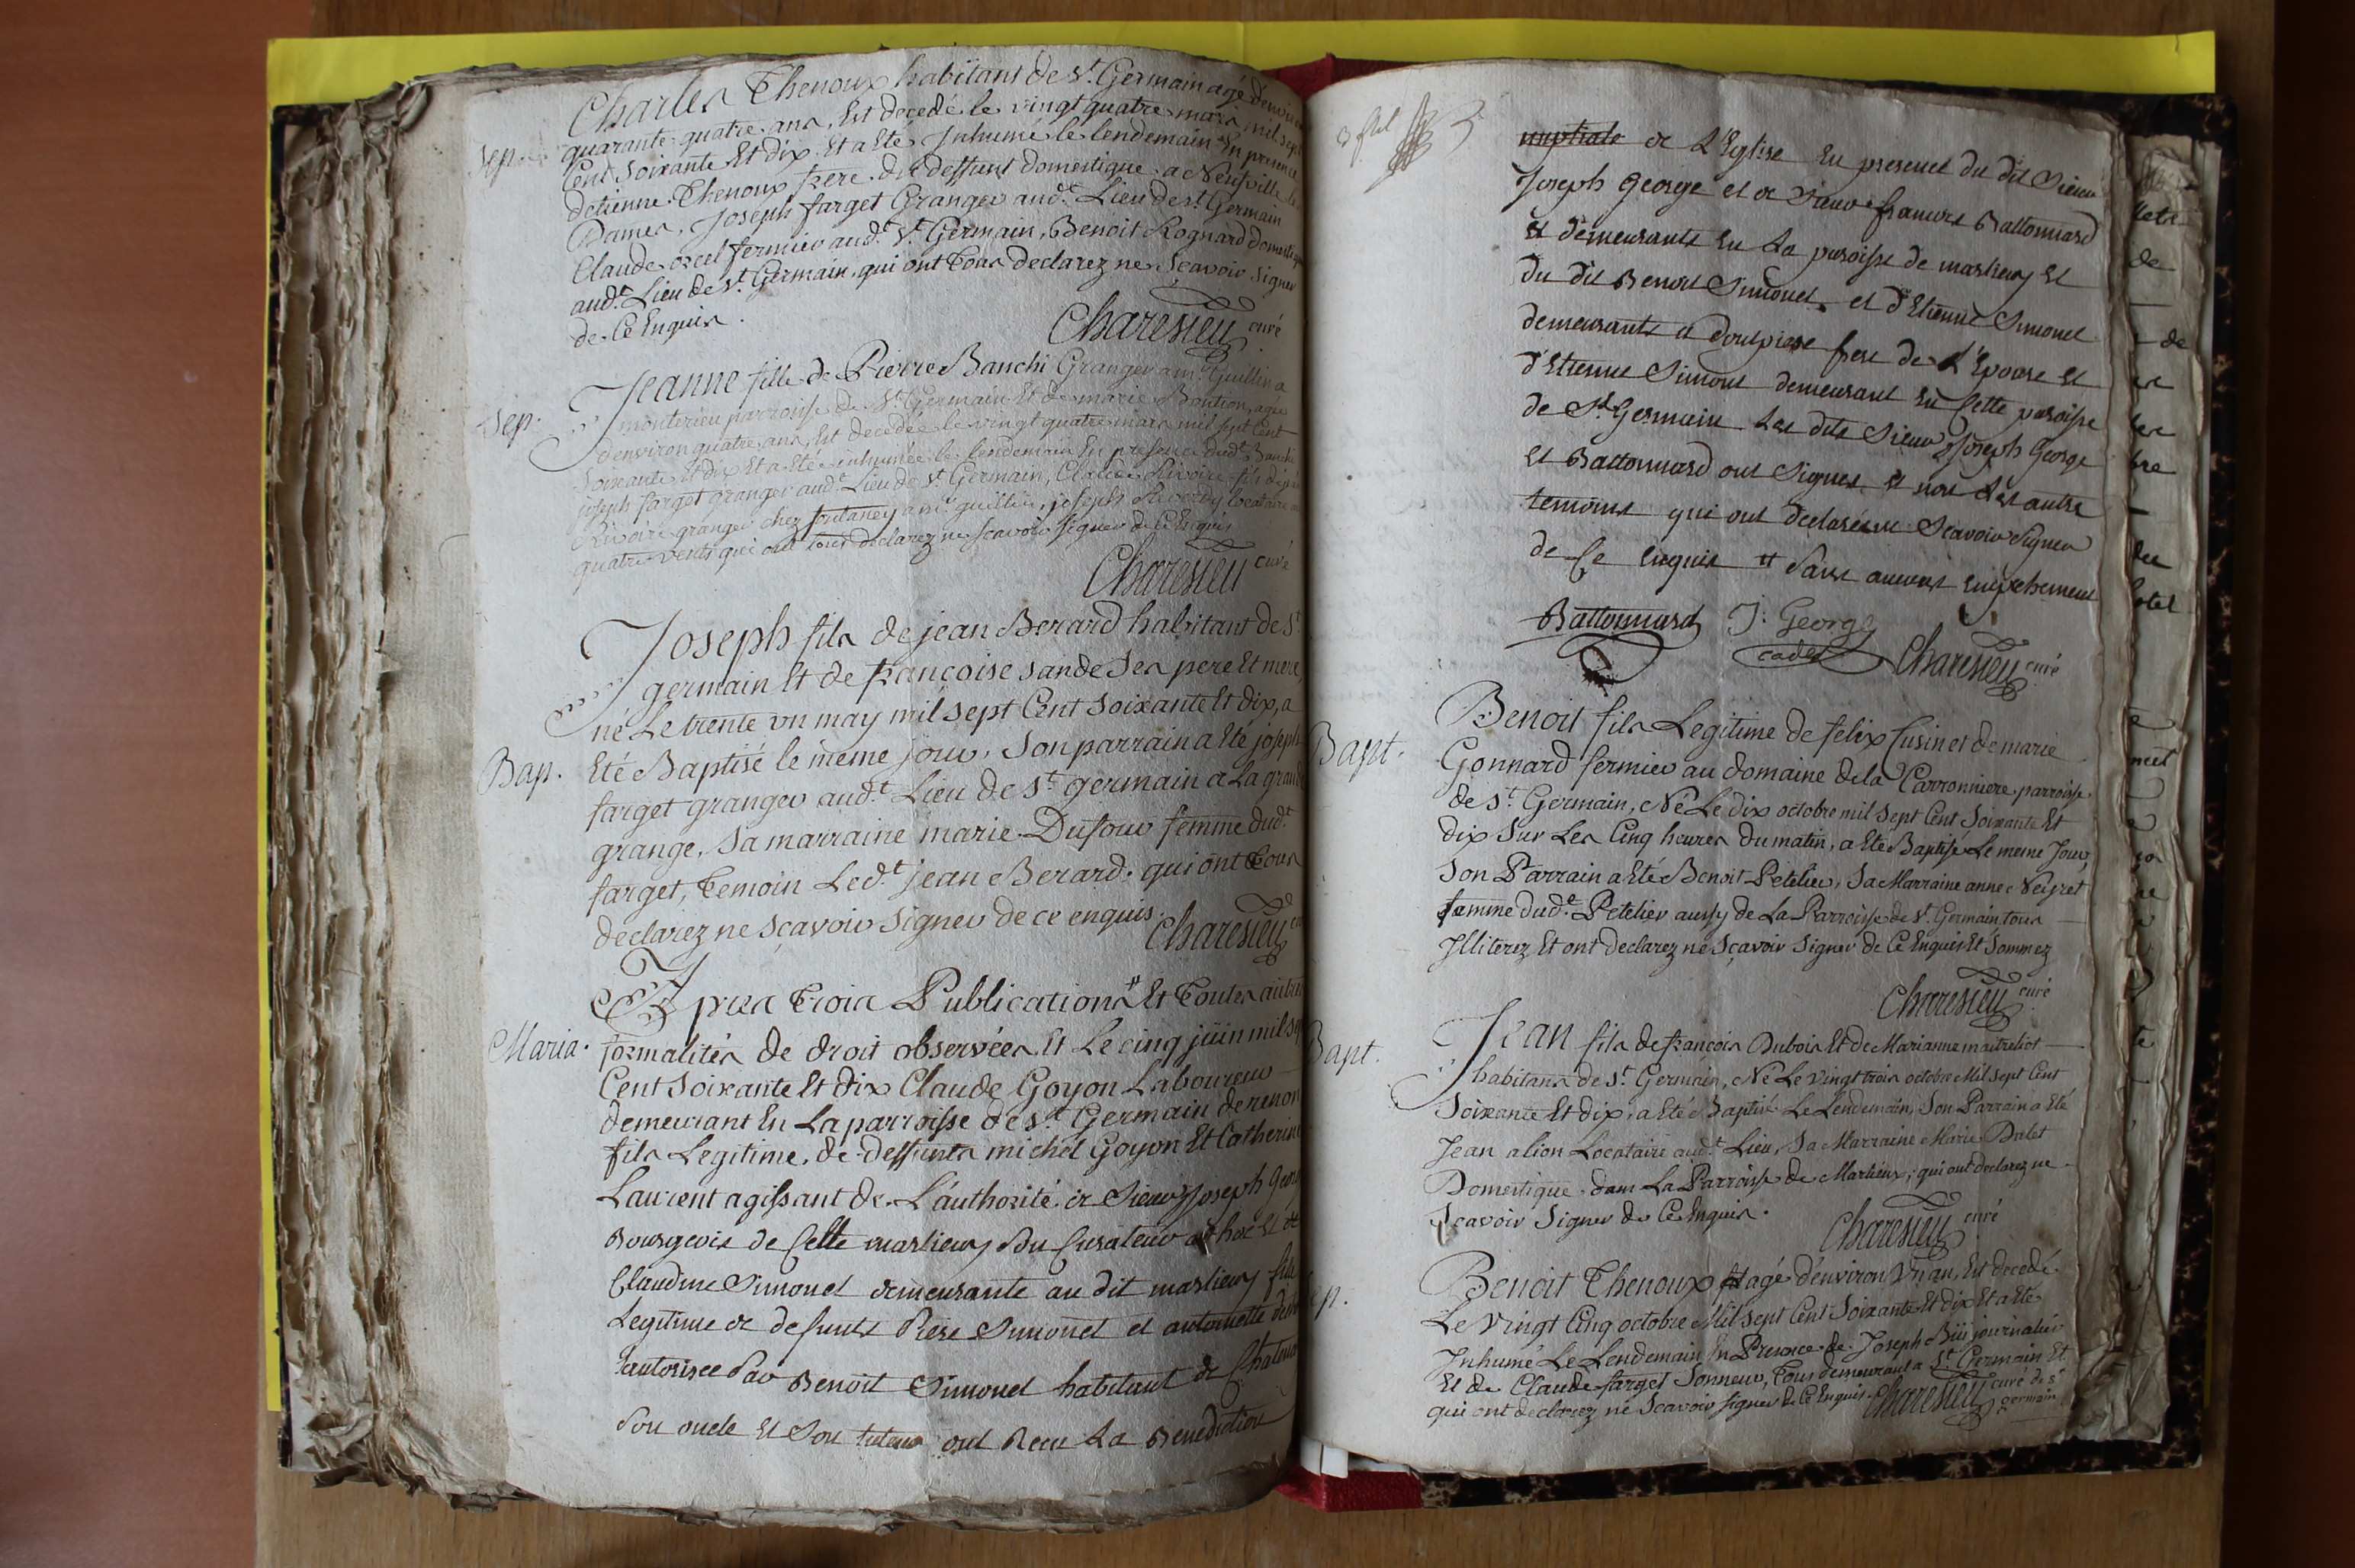 Charles Thenoux habitant de St. Germain agé d'environ
Sep. quarante quatre ans, Est decedé le vingt quatre mars mil sept
Cent Soixante Et dix Et a Eté Inhumé le lendemain En presence
detienne Thenoux frere du deffunt domestique a Neufville les
Dames, Joseph farget Granger aud.t Lieu de st Germain
Claude orcel fermier aud.t St. Germain, Benoit Rognard domestique
aud.t Lieu de St. Germain, qui ont Tous declarez ne Scavoir Signer
de Ce Enquis.
Charesieu curé
Jeanne fille de Pierre Banchi Granger a mr. Guillin a
Sep. montérieu parroisse de St. Germain Et de marie Bontion, agée
d'environ quatre ans, Est decedée le vingt quatre mars mil sept Cent
Soixante Et dix Et a Eté inhumée le lendemain En presence dud.t Banchi
joseph farget granger aud.t Lieu de st Germain, Claude Rivoire fils de
Rivoire granger chez fontaney a mr. guillin, joseph Reverdy locataire
quatre vents qui ont tous declarez ne Scavoir signer de Ce Enquis
Charesieu curé
Joseph fils de jean Berard habitant de St.
germain Et de françoise sande Ses pere Et mere,
né Le trente un may mil sept Cent Soixante Et dix, a
Bap. Eté Baptisé le même jour, Son parrain a Eté joseph
farget granger aud.t Lieu de St. germain a La grande
grange, Sa marraine marie Dufour femme dud.t
farget, Temoin Led.t jean Berard, qui ont Tous
declarez ne Sçavoir Signer de ce enquis.
Charesieu
Apres Trois Publications # Et Toutes autres
Maria. formalités de droit observées Et Le cinq juin mil sept
Cent Soixante Et dix Claude Goyon Laboureur
demeurant En La parroisse de St. Germain de renon
fils Legitime de deffunts michel Goyon Et Catherine
Laurent agissant de L'authorité de Sieur Joseph George
Bourgeois de Cette marlieux Son Curateur ad hoc Et
Claudine Simonet demeurante au dit marlieux fille
Legitime de defunts Piere Simonet et antoinette
autorisee Par Benoit Simonet habitant de
Son oncle Et Son tuteur ont Recu La Benediction
nuptiale de L'Eglise En presence du dit Sieur
Joseph George et de Sieur francois Battonnard
Et demeurants En La paroisse de marlieux Et
du dit Benoit Simonet, et d'Etienne Simonet
demeurants a frere de L'Epouse Et
d'Etienne Simonet demeurant En Cette paroisse
de St Germain Les dits Sieur Joseph George
Et Battonnard ont Signes Et non Les autre
temoins qui ont declarés ne Scavoir Signer
de Ce Enquis # Sans aucuns Empechement
Battonnard J: George
cadet Charesieu curé
Benoit fils Legitime de felix Cusin et de marie
Bapt. Gonnard fermier au domaine de la Carronniere parroisse
de St. Germain, Né Le dix octobre mil Sept Cent Soixante Et
dix Sur Les Cinq heures du matin, a Eté Baptisé Le meme Jour,
Son Parrain a Eté Benoit Petelier, Sa Marraine anne Neyret
femme dud.t Petelier aussy de La Parroisse de St. Germain tous
Illiterez Et ont declarez ne Sçavoir Signer de Ce Enquis Et Sommez
Charesieu curé
Jean fils de françois Dubois Et de Marianne maitreliot
Bapt. habitans de St. Germain, Né Le Vingt trois octobre Mil Sept Cent
Soixante Et dix, a Eté Baptisé Le Lendemain, Son Parrain a Eté
Jean alion Locataire aud.t Lieu, Sa Marraine Marie Dalet
Domestique dans La Parroisse de Marlieux, qui ont declarez ne
Scavoir Signer de Ce Enquis.
Charesieu curé
Benoit Thenoux agé d'environ Un an, Est decedé
Le Vingt Cinq octobre Mil Sept Cent Soixante Et dix Et a Eté
Inhumé Le Lendemain En Presence de Joseph journalier
Et de Claude farget Sonneur, Tous demeurant a St. Germain Et
qui ont declarez ne Scavoir signer de Ce Enquis. Charesieu curé de st
germain